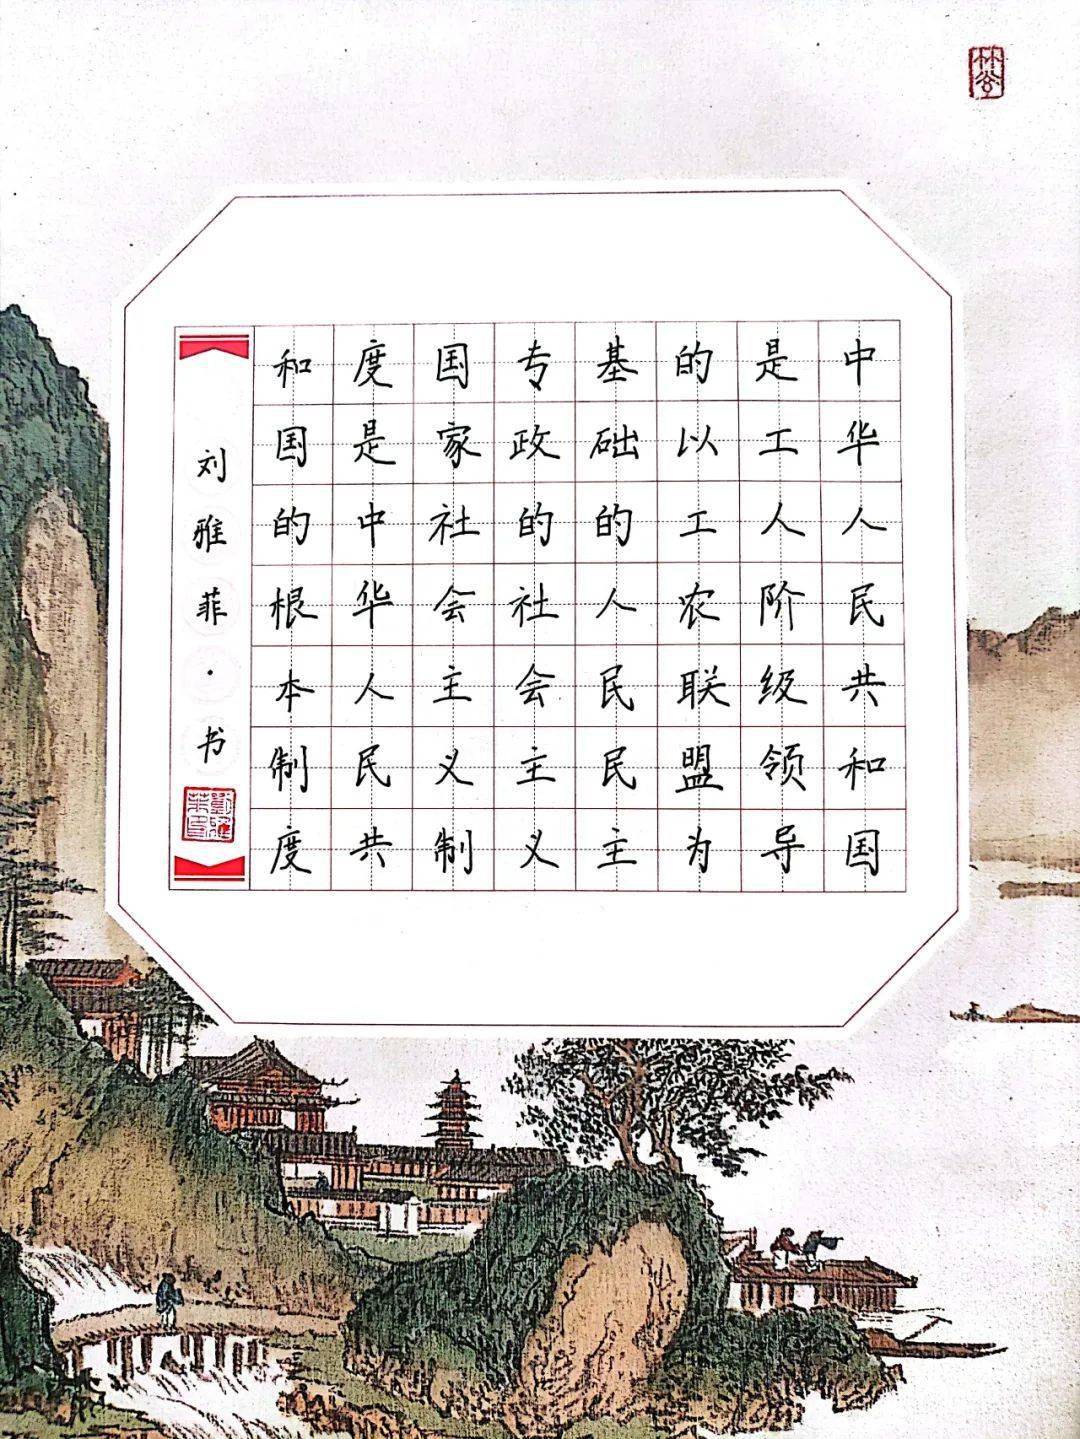 中华人民共和国
是工人阶级领导
的以工农联盟为
基础的人民民主
专政的社会主义
国家社会主义制
度是中华人民共
和国的根本制度
刘雅菲·书